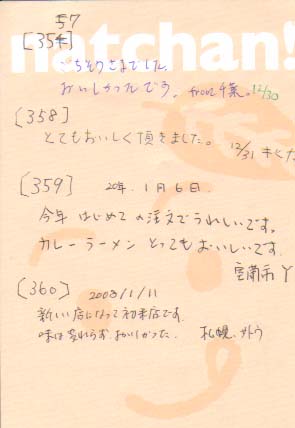 57
[354]
natchan!
ごちそうさまでした
おいしかったです。from 千葉。12/30
[358]
とてもおいしく頂きました。 12/31
[359] 20年 1月6日.
今年 はじめての注文でうれしいです。
カレーラーメン とってもおいしいです.
室蘭市 Y
[360] 2008/1/11
新しい店になって初来店です.
味は変わらず おいしかった. 札幌、サトウ